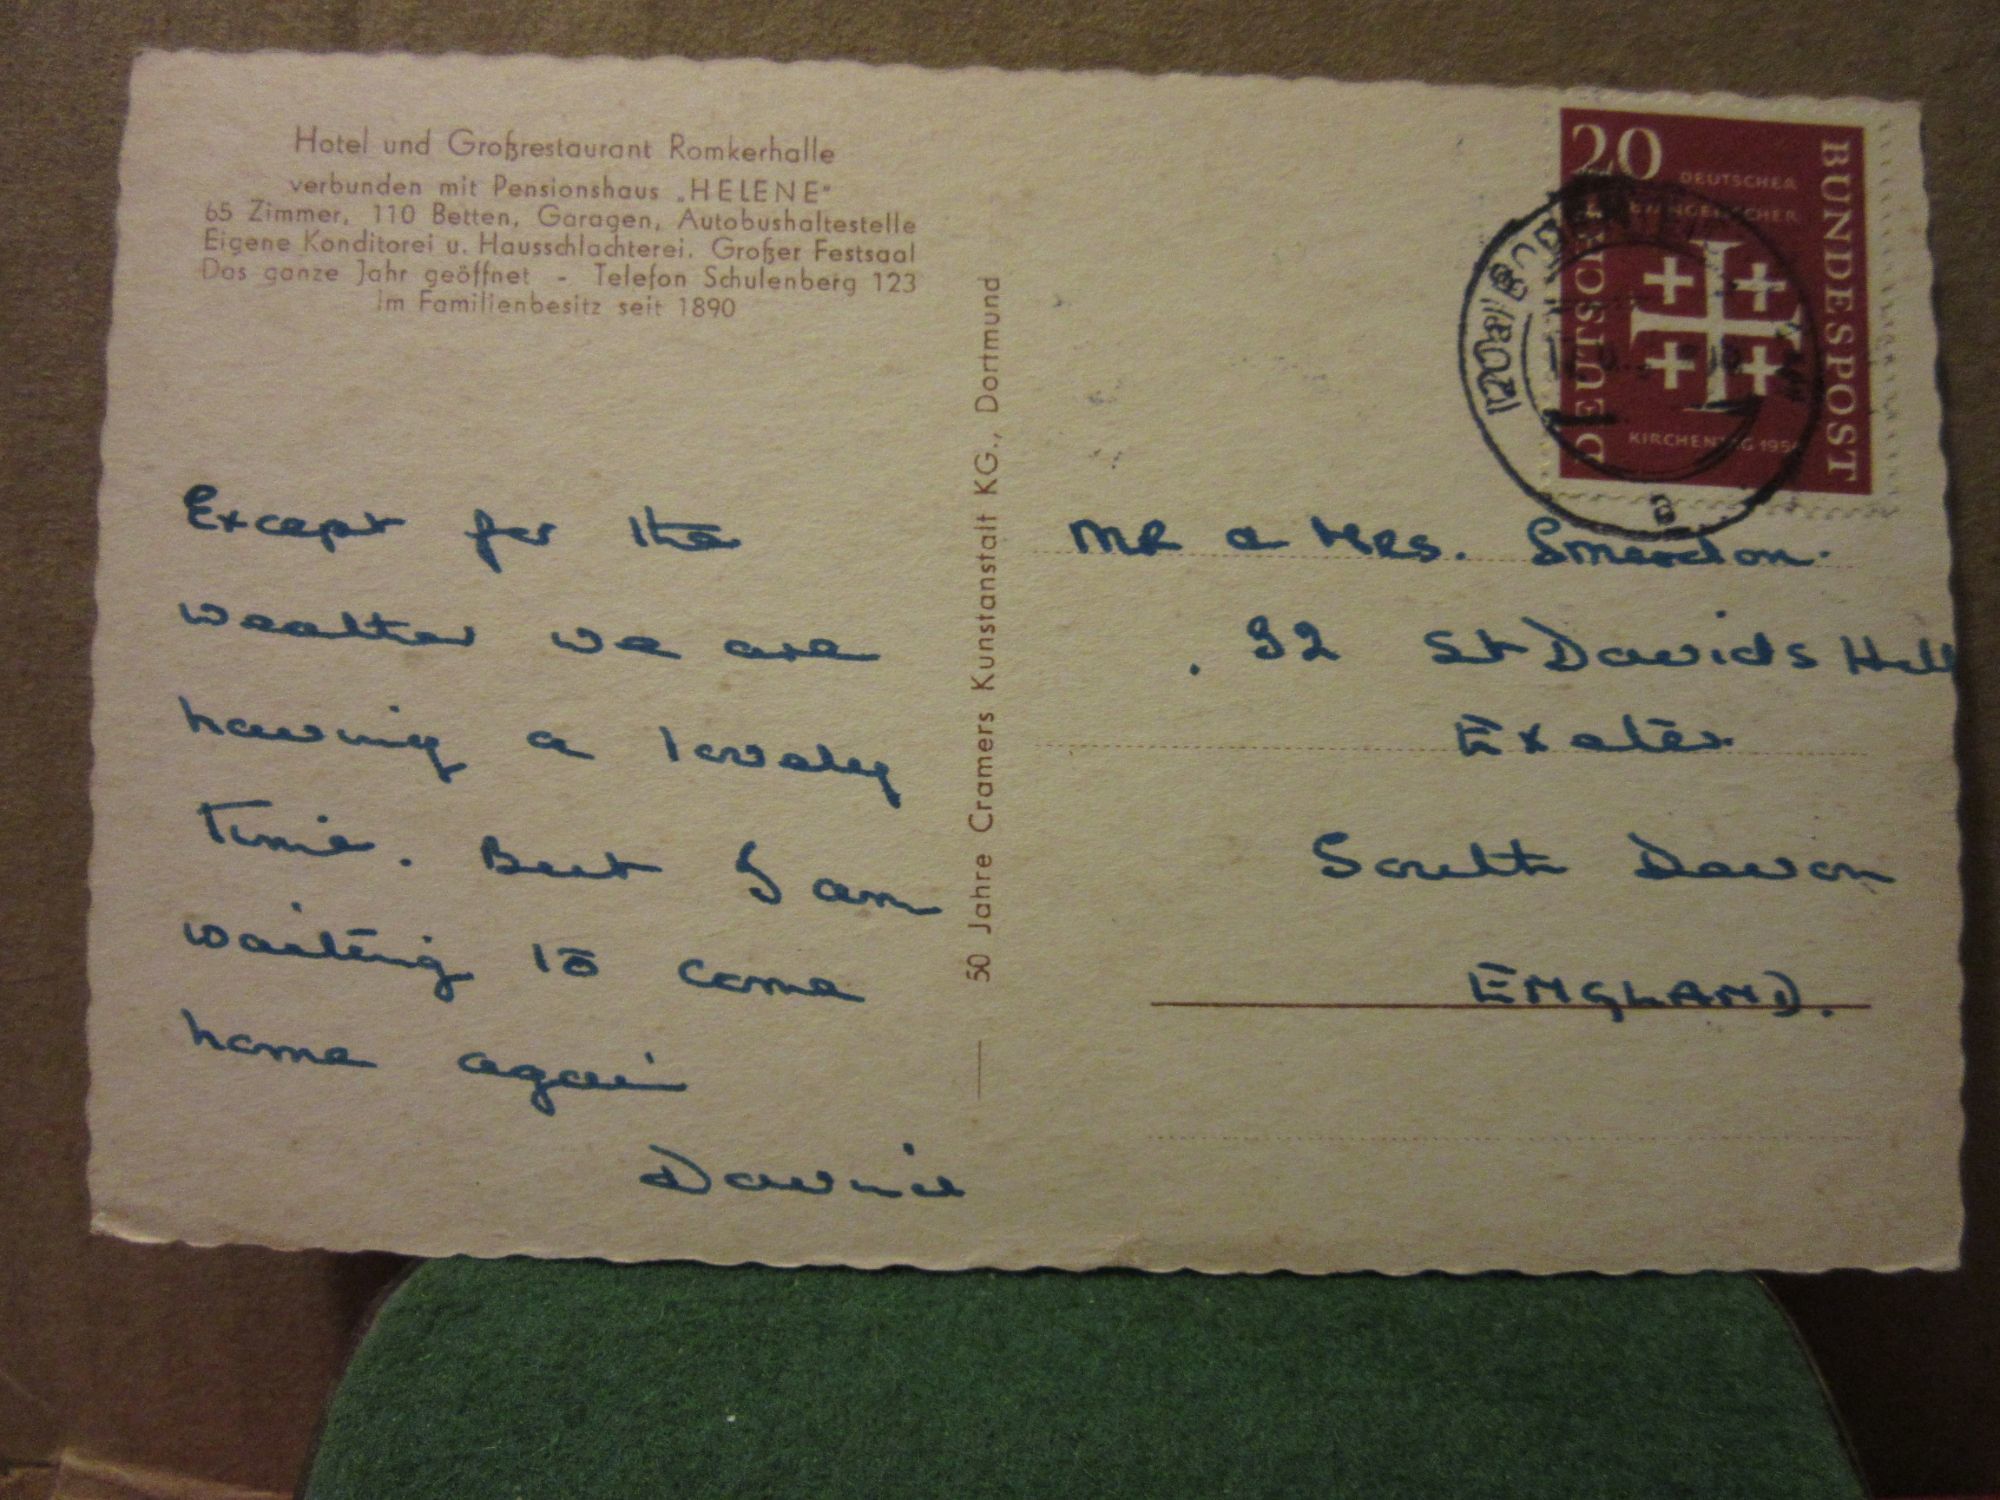 Hotel und Großrestaurant Romkerhalle
verbunden mit Pensionshaus „HELENE"
65 Zimmer, 110 Betten, Garagen, Autobushaltestelle
Eigene Konditorei u. Hausschlachterei. Großer Festsaal
Das ganze Jahr geöffnet - Telefon Schulenberg 123
Im Familienbesitz seit 1890
Except for the
weather we are
having a lovely
time. But I am
waiting to come
home again
50 Jahre Cramers Kunstanstalt KG., Dortmund
20
DEUTSCHER
EVANGELISCHER
KIRCHENTAG 1956
DEUTSCHE
BUNDESPOST
MR & MRS. Smerdon.
32 St Davids Hill
Exeter
South Devon
ENGLAND.